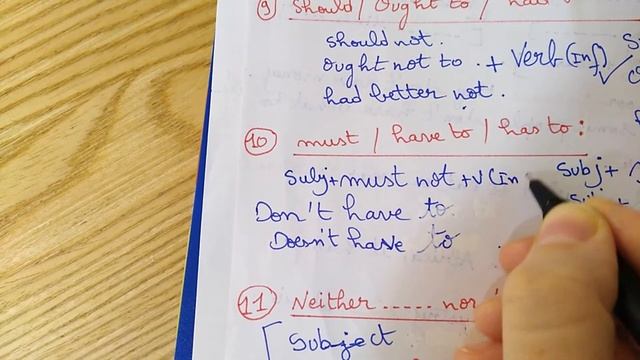 9 Should / Ought to / had
should not.
ought not to + Verb (Inf)
had better not.
10 must / have to / has to:
Subj+must not +V(In Subj+
Don't have to
Doesn't have to
11 Neither ..... nor
Subject